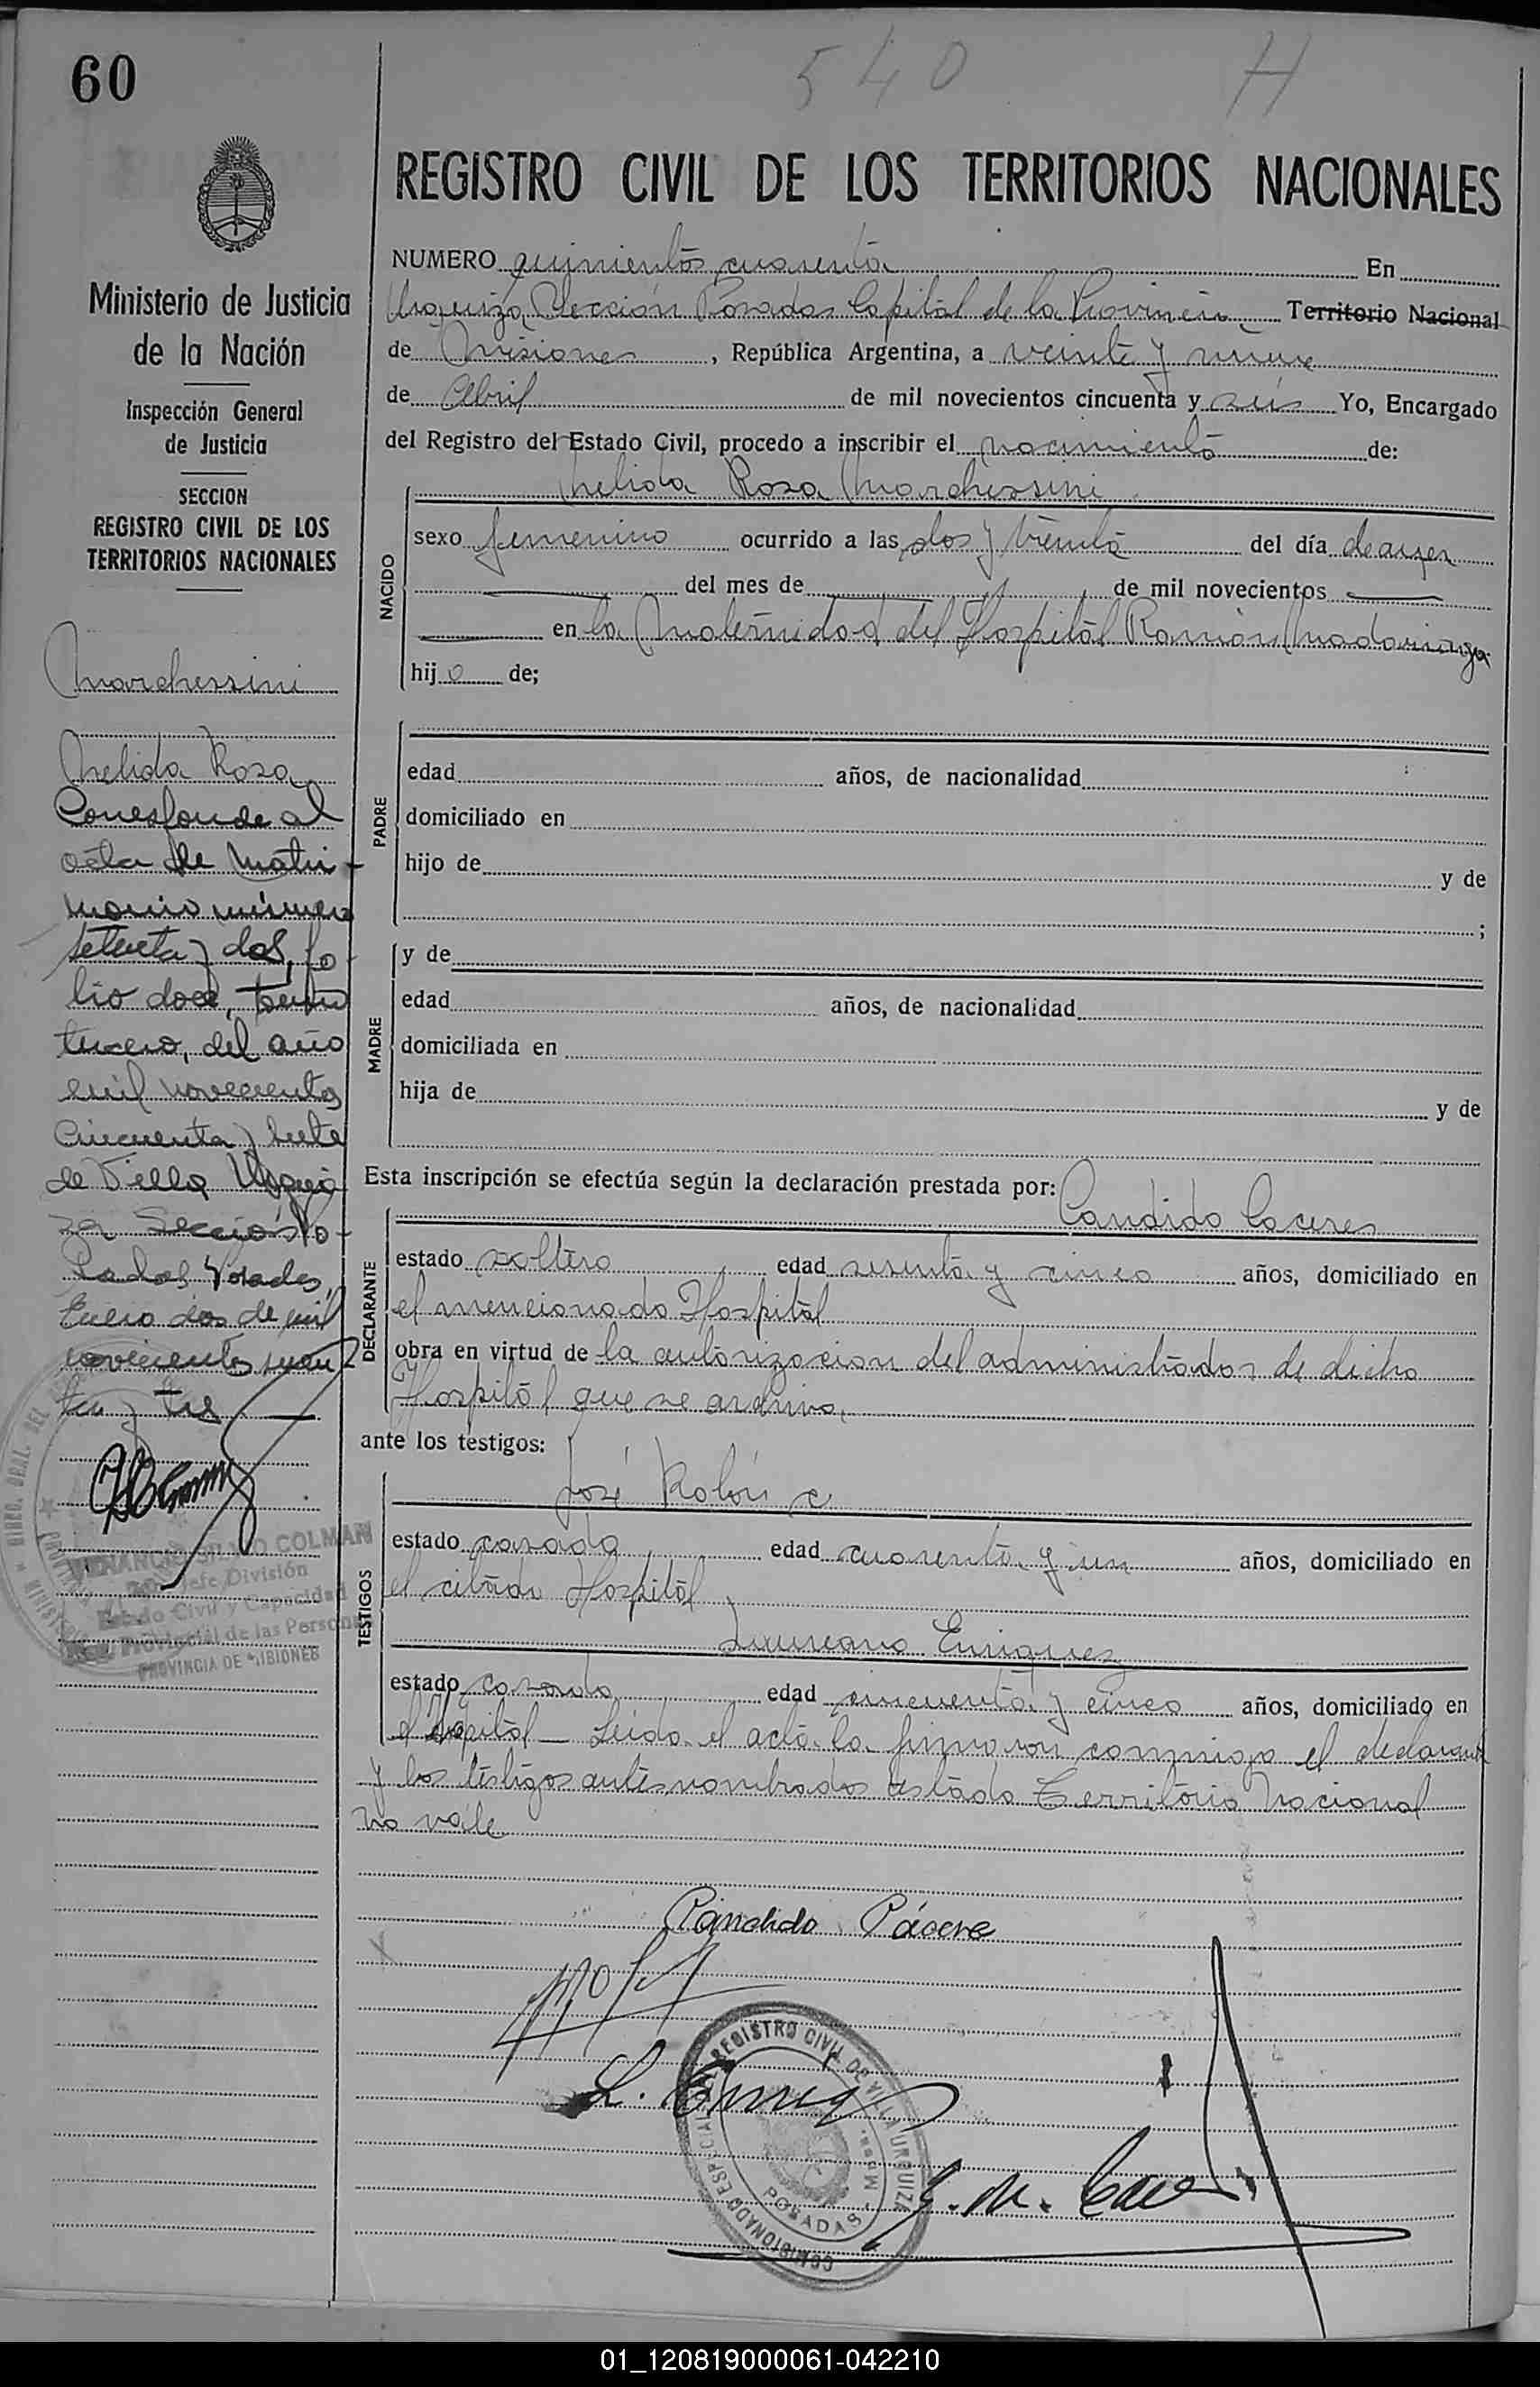 60
540 H
REGISTRO CIVIL DE LOS TERRITORIOS NACIONALES
Ministerio de Justicia
de la Nación
Inspección General
de Justicia
SECCION
REGISTRO CIVIL DE LOS
TERRITORIOS NACIONALES
Marchessini
Nelida Rosa
Corresponde al
acta de matri-
monio número
setenta y dos, fo-
lio doce, tomo
tercero, del año
mil novecientos
cincuenta y siete
de Villa Urqui
za Sección Po-
sadas Posadas,
Enero dos de mil
novecientos
ta y tres
COLMAN
Jefe División
Estado Civil y Capacidad
Provincial de las Personas
PROVINCIA DE MISIONES
NUMERO quinientos cuarenta En
Urquiza Sección Posadas Capital de la Provincia Territorio Nacional
de Misiones, República Argentina, a veinte y nueve
de Abril de mil novecientos cincuenta y seis Yo, Encargado
del Registro del Estado Civil, procedo a inscribir el nacimiento de:
Nelida Rosa Marchessini
NACIDO
sexo femenino ocurrido a las dos y treinta del día de ayer
del mes de de mil novecientos
en la Maternidad del Hospital Ramón Madariaga
hijo de;
PADRE
edad años, de nacionalidad
domiciliado en
hijo de y de
;
MADRE
y de
edad años, de nacionalidad
domiciliada en
hija de y de
Esta inscripción se efectúa según la declaración prestada por:
Candido Caceres
DECLARANTE
estado soltero edad sesenta y cinco años, domiciliado en
el mencionado Hospital
obra en virtud de la autorizacion del administrador de dicho
Hospital que se archiva,
ante los testigos:
José Robín
TESTIGOS
estado casado edad cuarenta y un años, domiciliado en
el citado Hospital
Laureano Enriquez
estado casado edad cincuenta y cinco años, domiciliado en
el Hospital — Leida el acta la firmaron conmigo el declarante
y los testigos antes nombrados testado Territorio Nacional
no vale
Cándido Cácere
L. Enriq
REGISTRO CIVIL DE VILLA URQUIZA
COMISIONADO ESPECIAL
POSADAS - Mnes.
01_120819000061-042210